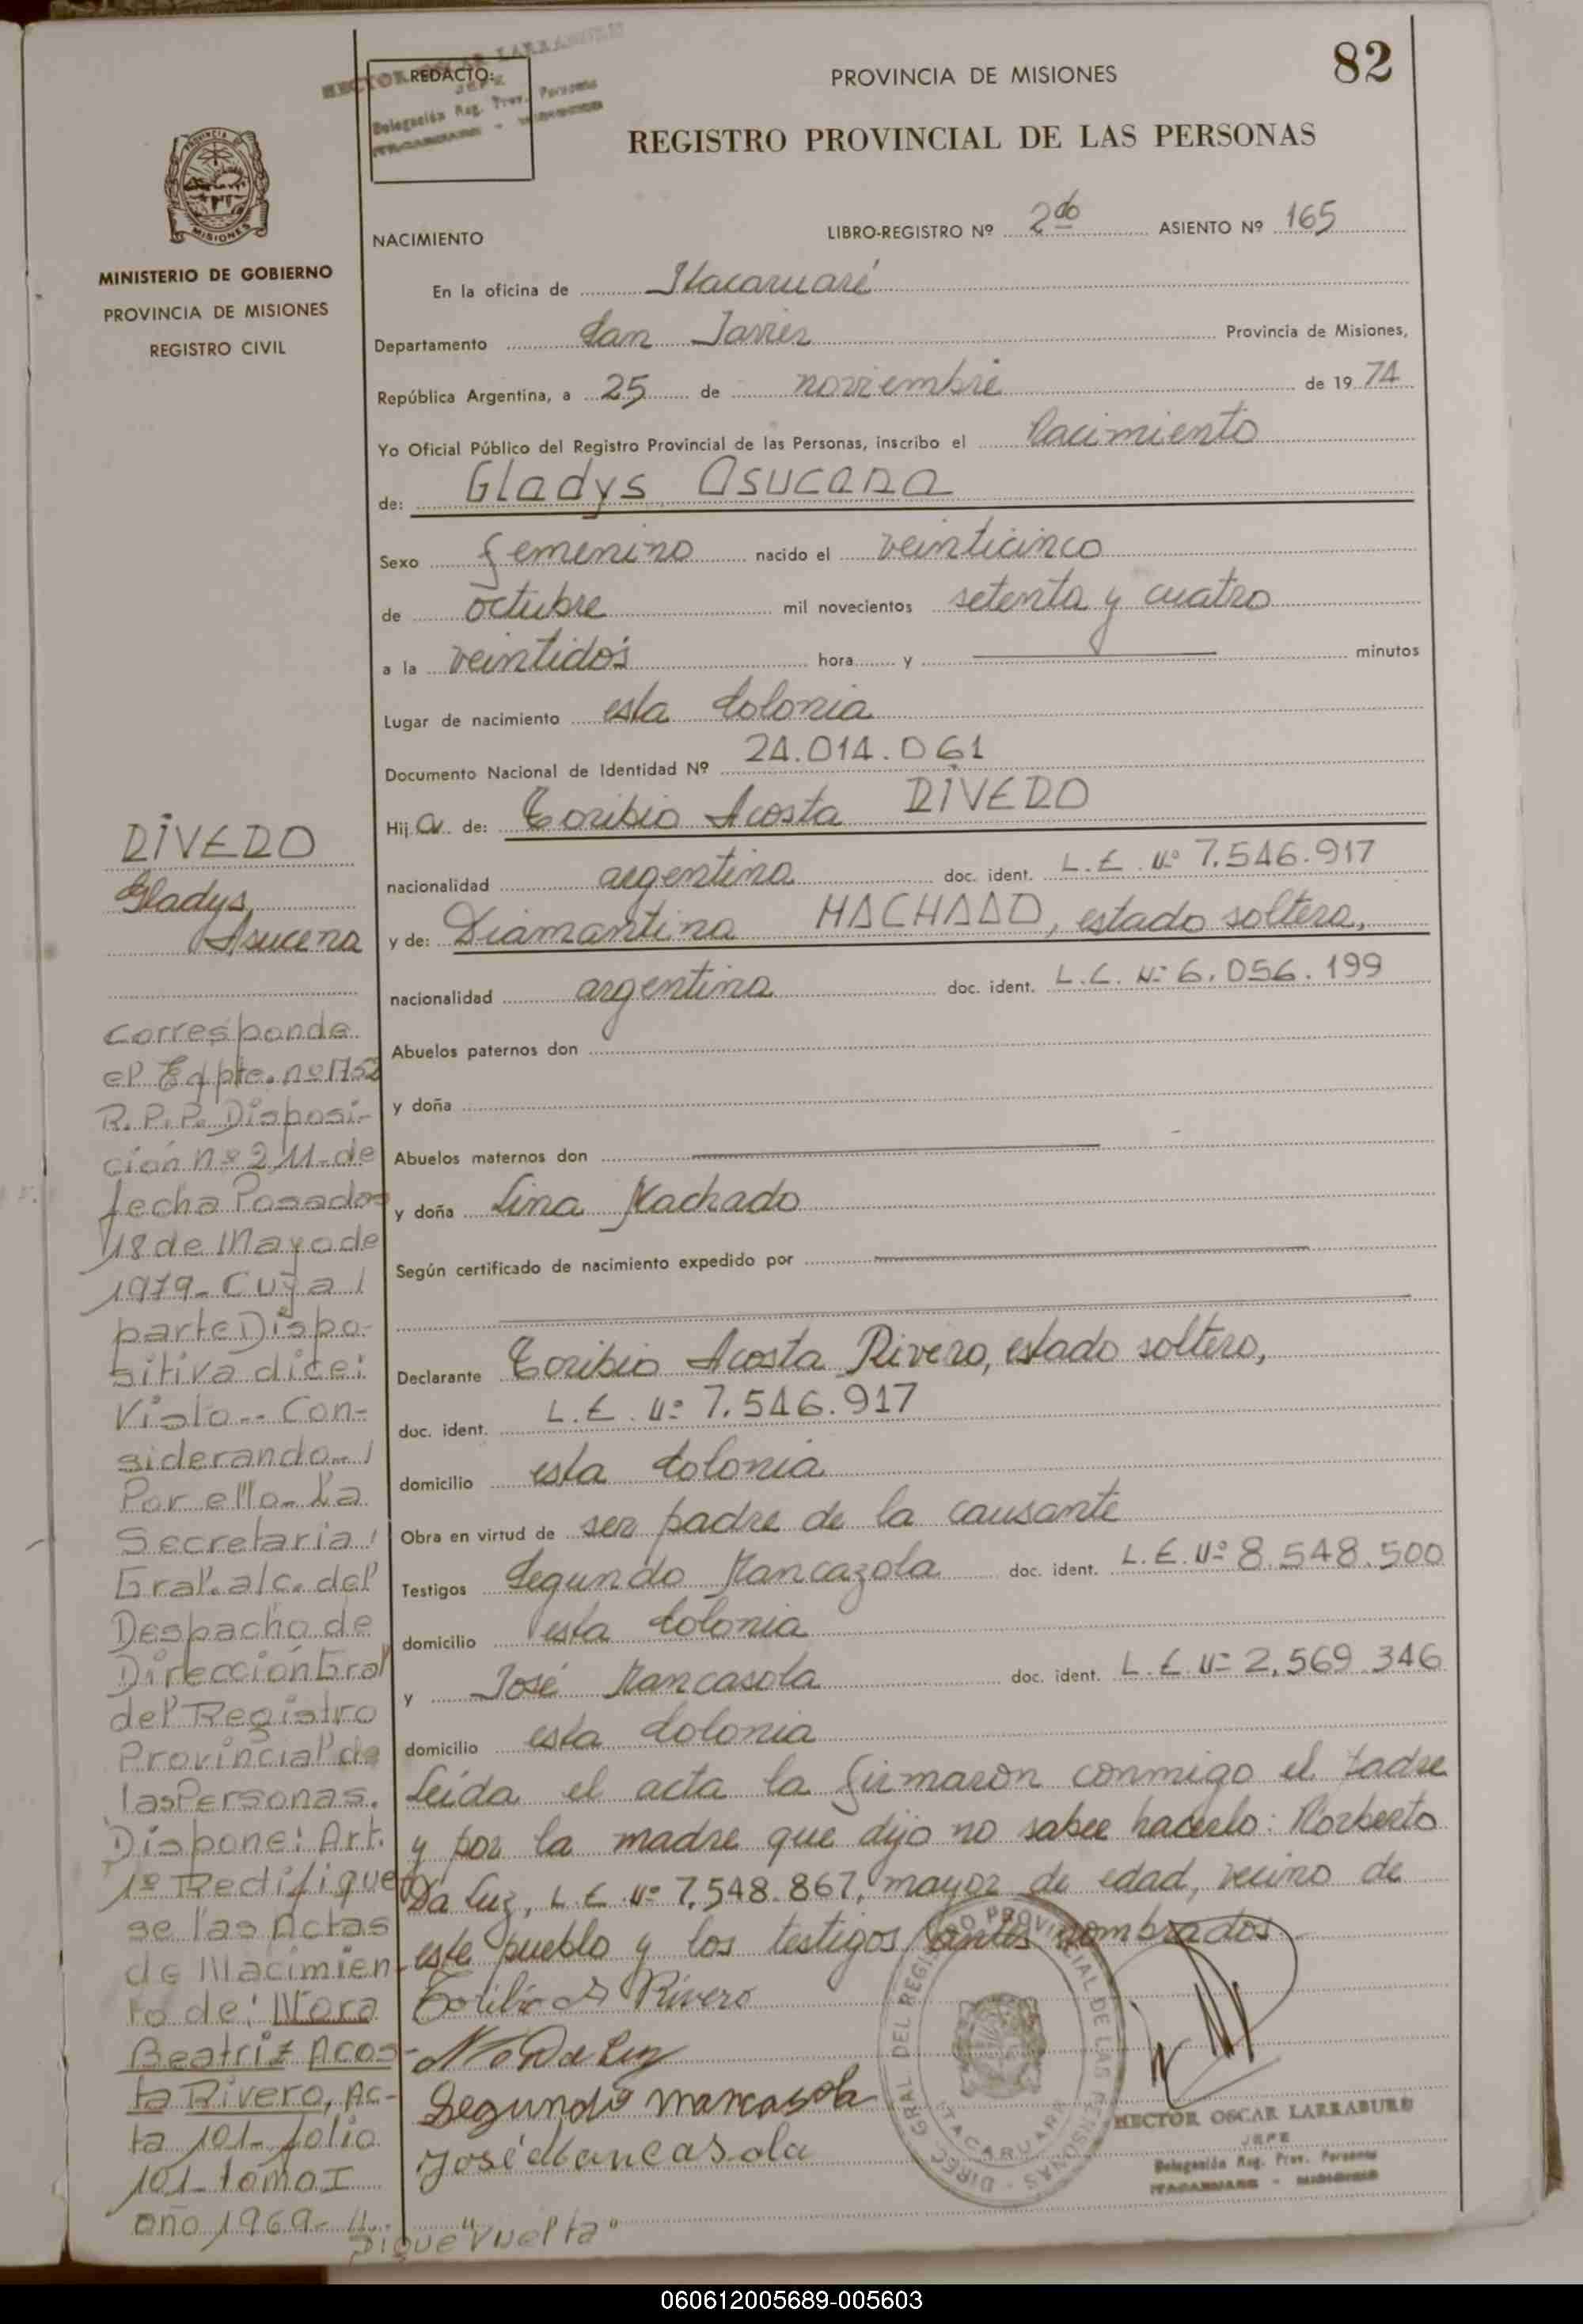 82
PROVINCIA DE MISIONES
REGISTRO PROVINCIAL DE LAS PERSONAS
REDACTO:
HECTOR OSCAR LARRABURE
JEFE
Delegación Reg. Prov. Personas
ITACARUARE - MISIONES
PROVINCIA
MISIONES
MINISTERIO DE GOBIERNO
PROVINCIA DE MISIONES
REGISTRO CIVIL
NACIMIENTO
LIBRO-REGISTRO Nº 2do ASIENTO Nº 165
En la oficina de Itacaruaré
Departamento San Javier Provincia de Misiones,
República Argentina, a 25 de noviembre de 19 74
Yo Oficial Público del Registro Provincial de las Personas, inscribo el Nacimiento
de: Gladys Asucena
Sexo femenino nacido el veinticinco
de octubre mil novecientos setenta y cuatro
a la veintidós hora y minutos
Lugar de nacimiento esta Colonia
Documento Nacional de Identidad Nº 24.014.061
Hij a de: Toribio Acosta RIVERO
nacionalidad argentina doc. ident. L.E. Nº 7.546.917
y de: Diamantina MACHADO, estado soltera,
nacionalidad argentina doc. ident. L.C. Nº 6.056.199
Abuelos paternos don
y doña
Abuelos maternos don
y doña Lina Machado
Según certificado de nacimiento expedido por
Declarante Toribio Acosta Rivero, estado soltero,
doc. ident. L.E. Nº 7.546.917
domicilio esta Colonia
Obra en virtud de ser padre de la causante
Testigos Segundo Mancazola doc. ident. L.E. Nº 8.548.500
domicilio esta Colonia
y José Mancasola doc. ident. L.E. Nº 2.569.346
domicilio esta Colonia
Leída el acta la firmaron conmigo el padre
y por la madre que dijo no saber hacerlo: Norberto
Da Luz, L.E. Nº 7.548.867, mayor de edad, vecino de
este pueblo y los testigos antes nombrados
Toribio A Rivero
N. Da Luz
Segundo Mancasola
José Mancasola
DIREC. GRAL. DEL REGISTRO PROVINCIAL DE LAS PERSONAS
ITACARUARE
HECTOR OSCAR LARRABURE
JEFE
Delegación Reg. Prov. Personas
ITACARUARE - MISIONES
RIVERO
Gladys
Asucena
Corresponde
el Expte. nº 1752
R.P.P. Disposi-
ción nº 211- de
fecha Posadas
18 de Mayo de
1979- Cuya
parte Dispo-
sitiva dice:
Visto-- Con-
siderando--
Por ello- La
Secretaria
Gral. a/c. del
Despacho de
Dirección Gral
del Registro
Provincial de
las Personas.
Dispone: Art.
1º Rectifique
se las Actas
de Nacimien-
to de: Nora
Beatriz Acos-
ta Rivero, Ac-
ta 101- folio
101- tomo I
año 1969-
Sigue "Vuelta"
060612005689-005603